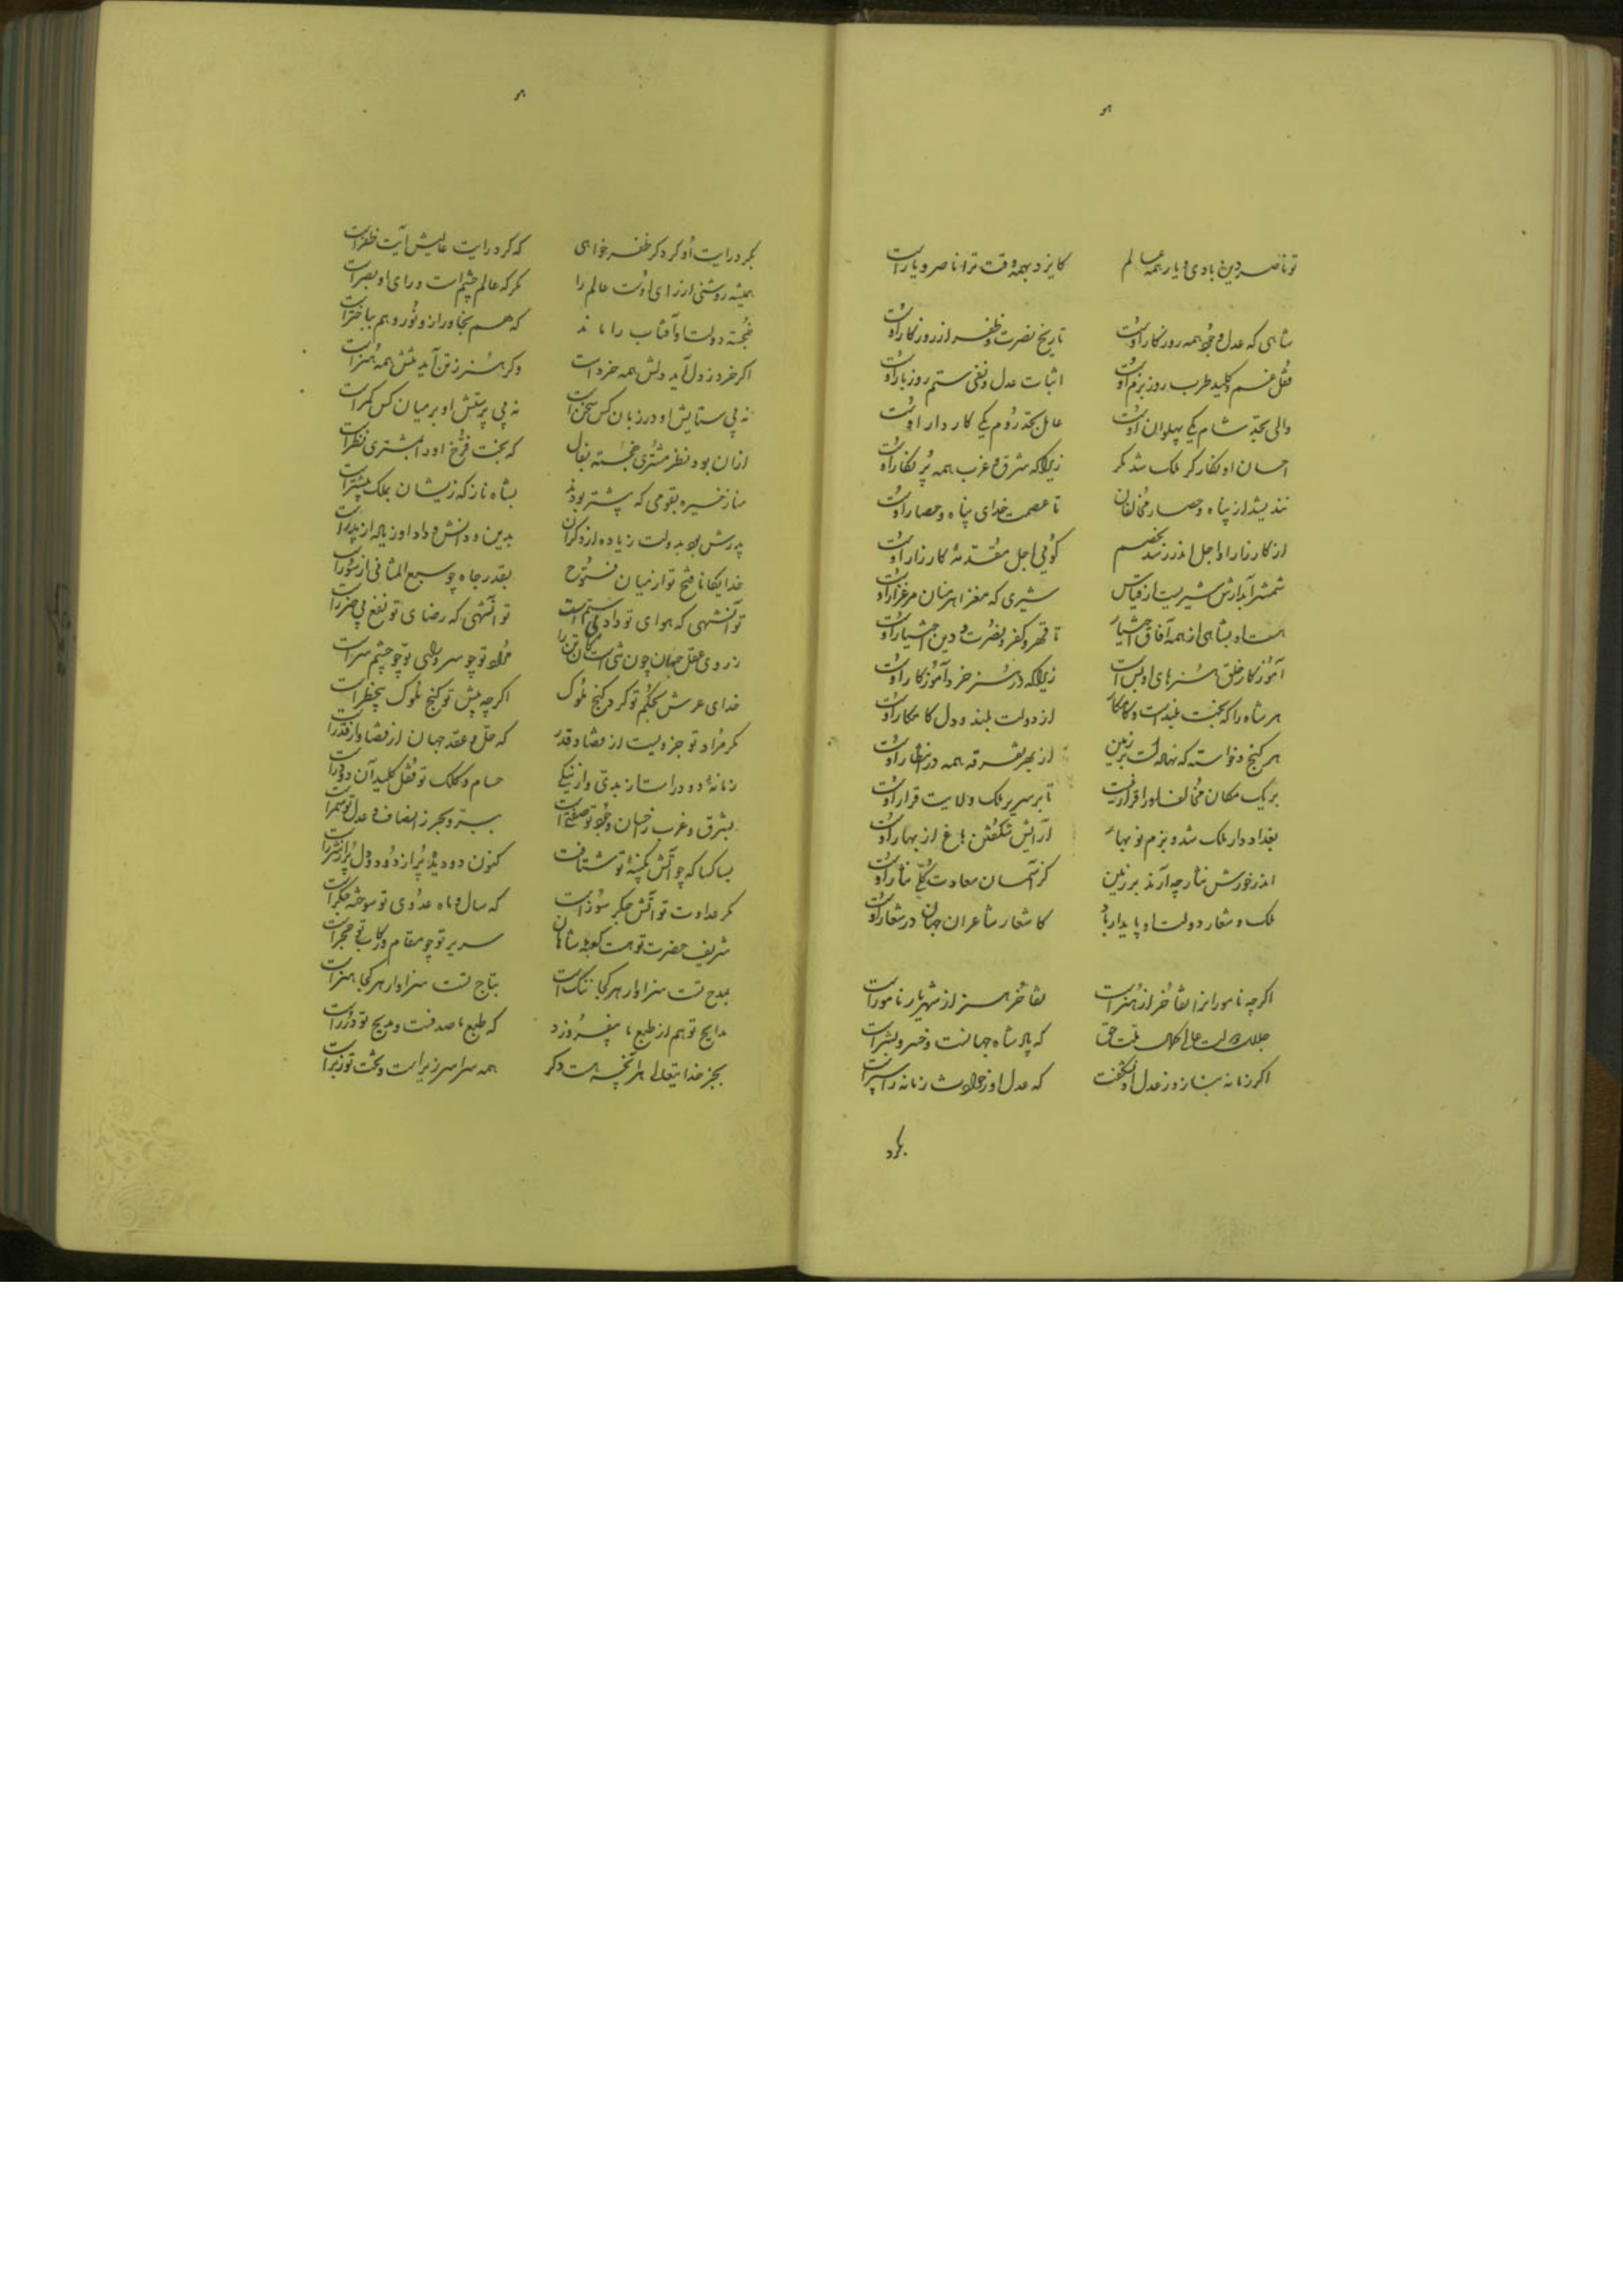 تو ناصر دین بادی و یار همه عالم کایزد بهمه وقت ترا ناصر و یارست
شاهی که عدل و جود همه روزگار اوست تاریخ نصرت و ظفر از روزگار اوست
قفل غم و کلید طرب روز بزم اوست اثبات عدل و نفی ستم روز بار اوست
والی بحد شام یکی پهلوان اوست عامل بحد روم یکی کاردار اوست
احسان او نکار کر ملک شد مکر زیرا که شرق و غرب همه پر نکار اوست
نندیشد از پناه و حصار مخالفان تا عصمت خدای پناه و حصار اوست
از کارزار او اجل اندر رسد بخصم کوئی اجل مقدمهٔ کارزار اوست
شمشیر آبدارش شیریست از قیاس شیری که مغز اهرمنان مرغزار اوست
هست او بشاهی از همه آفاق اختیار تا قهر کفر و نصرت دین اختیار اوست
آموزکار خلق هنرهای او بس است زیرا که در هنر خرد آموزکار اوست
هر شاه را که بخت بلندست و کامکار از دولت بلند و دل کامکار اوست
هر کنج و خواسته که نهادست بر زمین از بهر تفرقه همه در انتظار اوست
بر یک مکان مخالف او را قرار نیست تا بر سریر ملک و ولایت قرار اوست
بغداد دار ملک شد و بزم نوبهار آرایش شکفتن باغ از بهار اوست
اندر خورش نثار چه آرند بر زمین کز آسمان سعادت کلی نثار اوست
ملک و شعار دولت او پایدار باد کاشعار شاعران جهان در شعار اوست
اکرچه نامورانرا تفاخر از هنرست تفاخر هنر از شهریار نامورست
جلال دولت عالی کمال ملت حق که پادشاه جهانست و خسرو بشرست
اکر زمانه بنازد ز عدل او نه شکفت که عدل او ز حوادث زمانه را سپرست
بکرد
بکرد رایت او کرد کر ظفر خواهی که کرد رایت عالیش آیت ظفرست
همیشه روشنی از رای اوست عالم را مکر که عالم چشم است و رای او بصرست
خجسته دولت او آفتاب را ماند که هم بخاور ازو نور و هم بباخترست
اکر خرد ز دل آید دلش همه خردست وکر هنر ز تن آید تنش همه هنرست
نه بی ستایش او در زبان کس سخنست نه بی پرستش او بر میان کس کمرست
ازان بود نظر مشتری خجسته بفال که بخت فرخ او را بمشتری نظرست
مناز خیره بقومی که پیشتر بودند بشاه ناز که زیشان بملک بیشترست
پدرش بود بدولت زیاده از دکران بدین و دانش و داد او زیاده از پدرست
خدایکانا فتح تو از میان فتوح بقدر و جاه چو سبع المثانی از سورست
تو آنشهی که هوای تو داد بی ستم است تو آنشهی که رضای تو نفع بی ضررست
ز روی عقل جهان چون تنی است مکان تن را مراد تو چو سر و رای تو چو چشم سرست
خدای عرش بحکم تو کرد کنج ملوک اکرچه پیش تو کنج ملوک بیخطرست
مکر مراد تو جزویست از قضا و قدر که حل و عقد جهان از قضا و از قدرست
زمانه را دو درست از بدی و از نیکی حسام و کلک تو قفل و کلید آن دو درست
بشرق و غرب ز احسان و جود تو صفتست ببر و بحر ز انصاف و عدل تو سمرست
بسا کسا که چو آتش بکینهٔ تو شتافت کنون دو دیده پر از دود و دل پر از شررست
مکر عداوت تو آتش جکر سوزست که سال و ماه عدوی تو سوخته جکرست
شریف حضرت تو هست کعبهٔ شاهان سریر تو چو مقام و رکاب تو حجرست
بمدح تست سزاوار هر کجا تنکست بتاج تست سزاوار هر کجا هنرست
مدایح تو هم از طبع ما بیفروزد که طبع ما صدفست و مدیح تو دررست
بجز خدایتعالی هر آنچه هست دکر همه سراسر زیرست و بخت تو زبرست